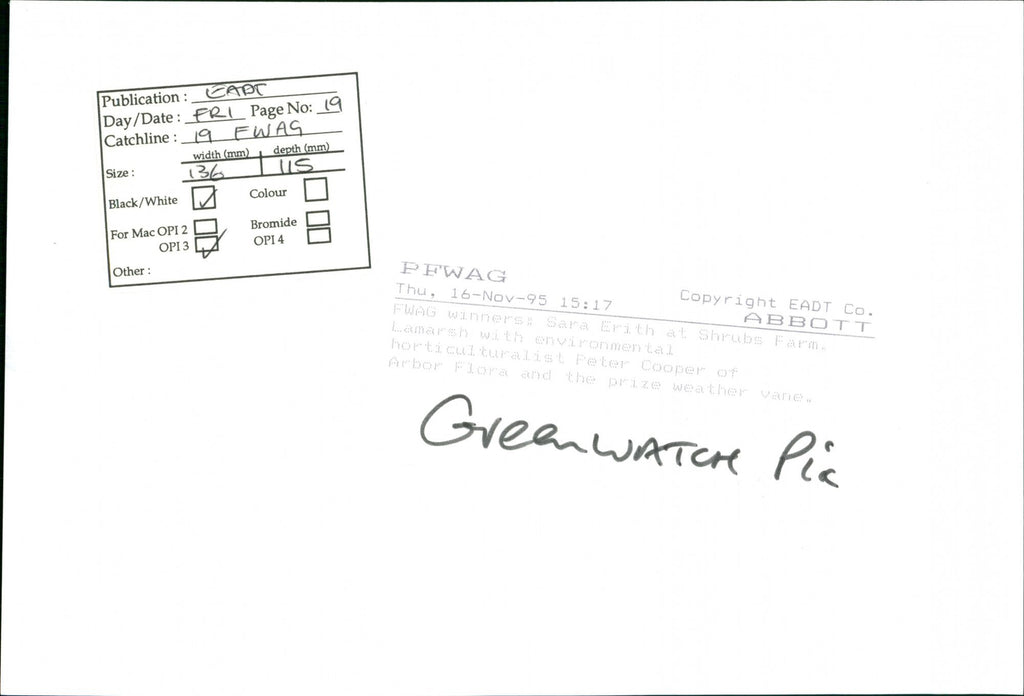 Publication : EADT
Day/Date : FRI Page No: 19
Catchline : 19 FWAG
width (mm) depth (mm)
Size : 136 115
Black/White Colour
For Mac OPI 2 Bromide
OPI 3 OPI 4
Other :
PFWAG
Thu, 16-Nov-95 15:17 Copyright EADT Co.
ABBOTT
FWAG winners: Sara Erith at Shrubs Farm.
Lamarsh with environmental
horticulturalist Peter Cooper of
Arbor Flora and the prize weather vane.
GreenWATCH Pic